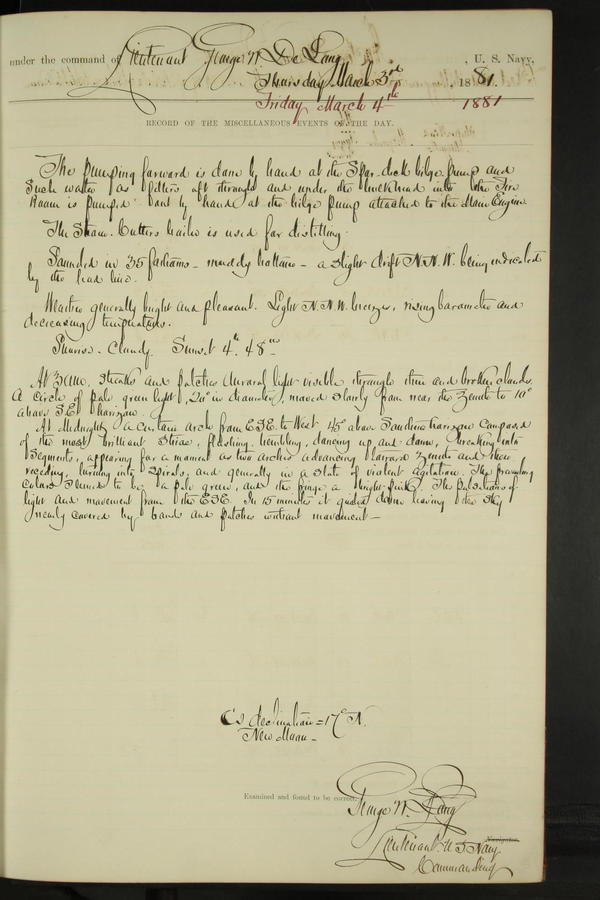 under the command of Lieutenant George W. De Long, U. S. Navy,
Thursday March 3rd, 1881.
Friday March 4th 1881
RECORD OF THE MISCELLANEOUS EVENTS OF THE DAY.
The pumping forward is done by hand at the Spar-deck bilge pump and
such water as filters aft through and under the bulkhead into the Fire
Room is pumped out by hand at the bilge pump attached to the Main Engine.
The Steam Cutters boiler is used for distilling.
Sounded in 35 fathoms - muddy bottom - a slight drift N.N.W. being indicated
by the lead line.
Weather generally bright and pleasant. Light N.N.W. breezes, rising barometer and
decreasing temperature.
Sunrise. Cloudy. Sunset 4h. 48m
At 3 AM. streaks and patches Auroral light visible through thin and broken clouds.
A circle of pale green light, 20° in diameter, moved slowly from near the Zenith to 10°
above S.E. horizon.
At Midnight a curtain arch from E.S.E. to West 45° above Southern horizon composed
of the most brilliant striae, flashing, trembling, dancing up and down, breaking into
segments, appearing for a moment as two arches advancing toward Zenith and then
receding, turning into spirals, and generally in a state of violent agitation. The prevailing
colors seemed to be a pale green, and the fringe a bright pink. The pulsations of
light and movement from the E.S.E. In 15 minutes it quieted down leaving the sky
nearly covered by bands and patches without movement -
declination = 17° N.
New Moon -
Examined and found to be correct.
George W. De Long
Navigator.
Lieutenant U. S. Navy
Commanding